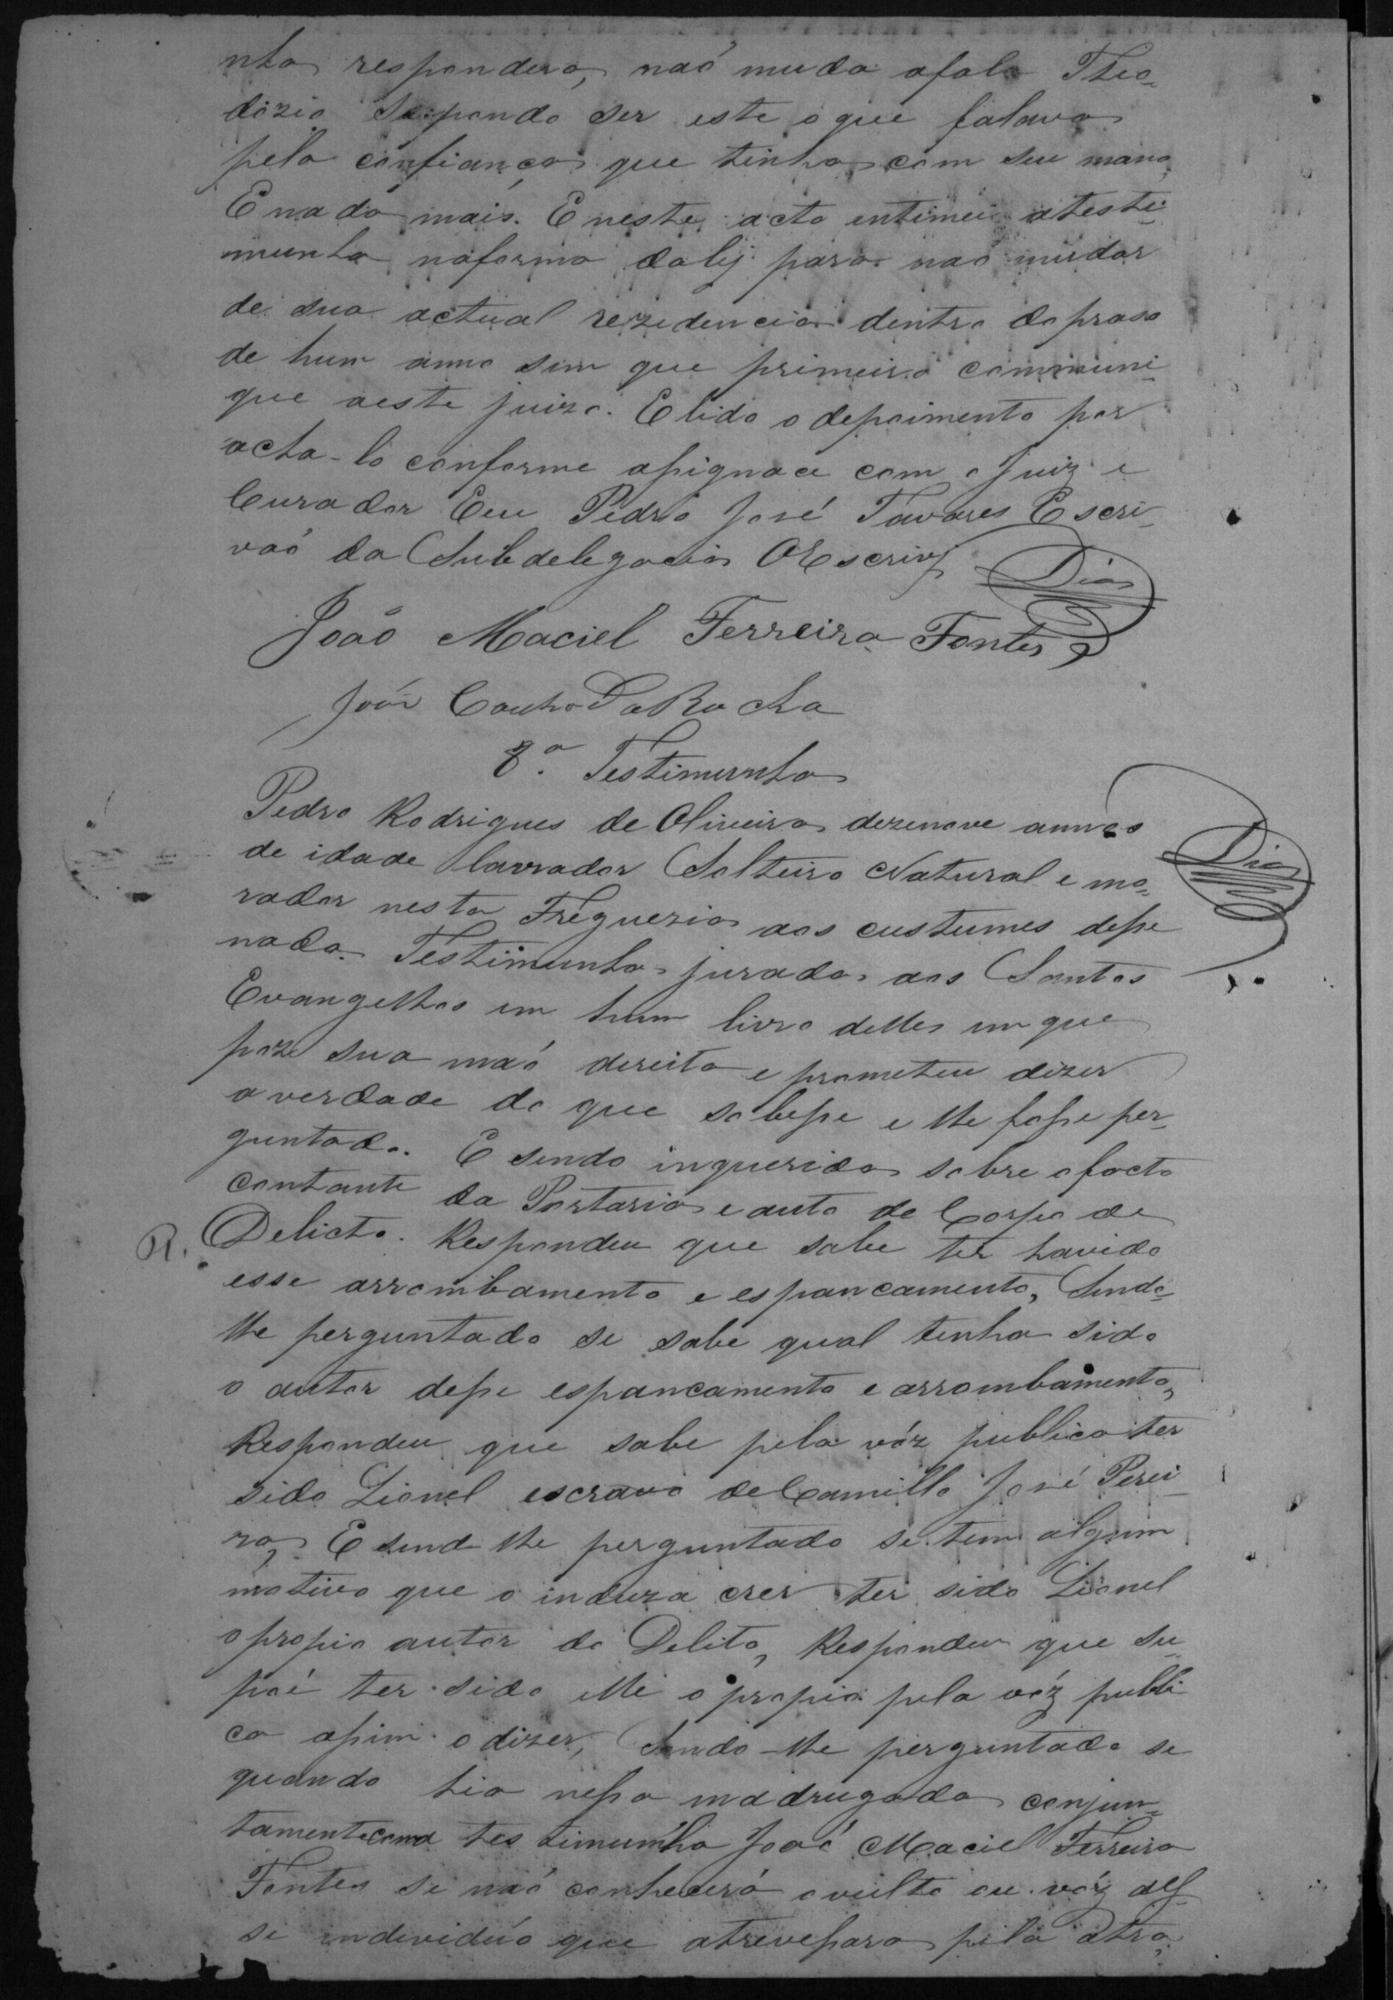 nha respondera, naó muda afala Theo-
dozio Supondo ser este oque falava
pela confiança que tinha com seu mano,
E nada mais. E neste acto intimei atesti-
munha naforma daley para naó mudar
de sua actual rezidencia dentro do praso
de hum anno sem que primeiro communi-
que aeste juizo. E lido o depoimento por
acha-lo conforme assignou com o Juiz e
Curador Eeu Pedro José Tavares Escri-
vaó da Subdelegacia OEscrivy
Dias
João Maciel Ferreira Fontes
João Coutro Da Rocha
8.ª Testimunha
Pedro Rodrigues de Oliveira dezenove annos
Dias
de idade lavrador Solteiro Natural e mo-
rador nesta Freguezia aos custumes disse
nada. Testimunha jurada aos Santos
Evangelhos em hum livro delles em que
poze sua maó direita e prometeu dizer
a verdade do que sobesse e lhe fosse per-
guntado. E sendo inquerido sobre ofacto
contante da Portaria e auto de Corpo de
R. Delicto. Respondeu que sabe ter havido
esse arrombamento e espancamento, Sendo-
lhe perguntado se sabe qual tenha sido
o autor desse espancamento e arrombamento,
Respondeu que sabe pela vóz publica ter
sido Lionel escravo de Camillo José Perei-
ra, E send lhe perguntado se tem algum
motivo que o induza crer ter sido Lionel
opropio autor do Delito, Respondeu que su
póe ter sido elle o propio pela vóz publi
ca assim o dizer, Sendo-lhe perguntado se
quando hia nessa madrugada conjun-
tamentecoma testimunha Joaó Maciel Ferreira
Fontes se naó conhecerá ovulto ou vóz des-
se individúo que atrevessara pela atra-